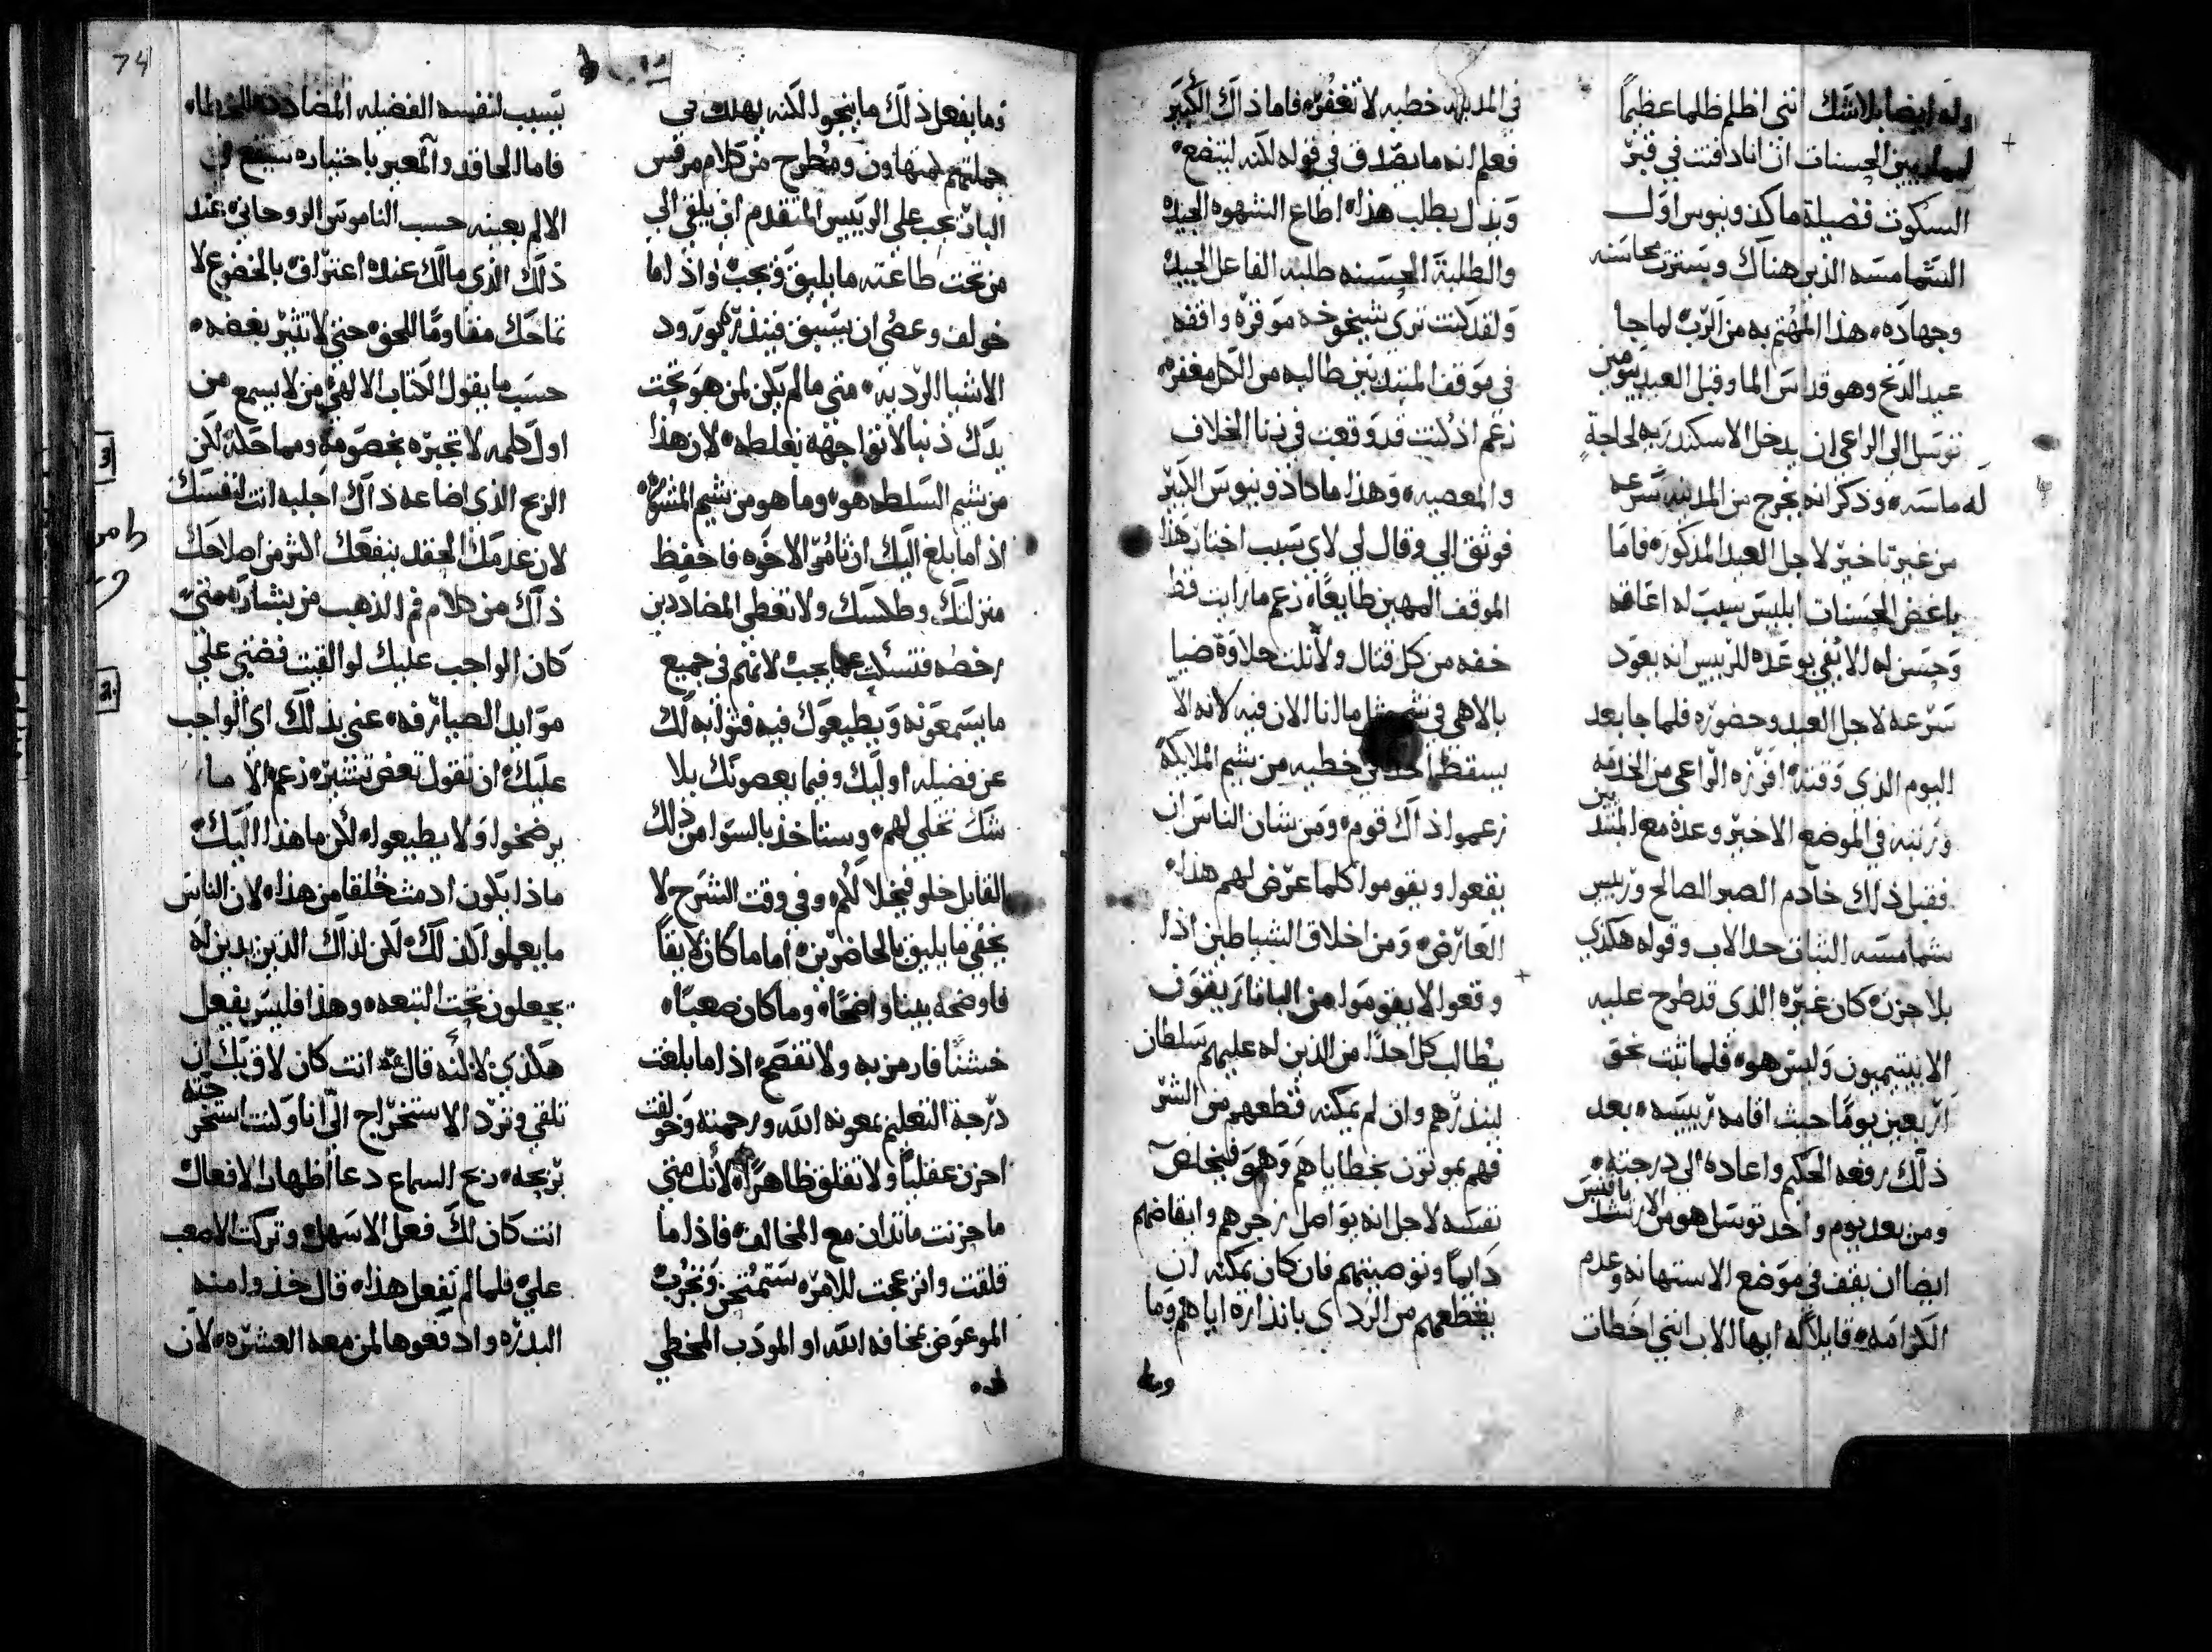 وله ايضا بلاشك انني اظلم ظلما عظيماً
بين الحسنات ان انا دافنت في قبر
السكوت فضيلة ماكدونيوس اول
الشمامسه الذين هناك ويسترت محاسنه
وجهاده هذا المهتم به من الرب لما جا
عيد الدنح وهو قداس الما وقبل العيد بيومين
توسل الى الراعي ان يدخل الاسكندريه لحاجة
له ماسه وذكر انه يخرج من المدينه بسرعه
من غير تاخير لاجل العيد المذكور فاما
باغض الحسنات ابليس سبب له اعاقه
وحسن له الا يفي بوعده للرييس انه يعود
سرعه لاجل العيد وحضوره فلما جا بعد
اليوم الذي وقته افرزه الراعي من الخدمه
ورتبه في الموضع الاخير وعده مع المبتد
يين
فقبل ذلك خادم الصبر الصالح ورييس
شمامسه الثبات حد الاب وقوله هكذي
بلا حزن كان غيره الذي قد طرح عليه
الابيتيميون وليس هو فلما ثبت نحو
اربعين يومًا حيث اقامه رييسه بعد
ذلك رفعه الحكيم واعاده الى درجته
ومن بعد يوم واحد توسل هو من الارشد
يافيس
ايضا ان يقف في موضع الاستهانه وعدم
الكرامه قايلاً له ايها الاب انني اخطات
في المدينه خطيه لا تغفر فاما ذاك الكبير
فعلم انه ما يصدق في قوله لكنه ليتضع
وبذل يطلب هذا اطاع الشهوه الجيده
والطلبة الحسنه طلبه الفاعل الجيده
ولقد كنت ترى شيخوخه موقره واقفه
في موقف المبتديين طالبه من الكل مغفره
زعم اذ كنت قد وقعت في زنا الخلاف
والمعصيه وهذا ماكاذونيوس الكبير
فوثق الي وقال لي لاي سبب اختار هذا
الموقف المهين طايعًا زعم ما رايت قط
خفه من كل قتال ولا نلت حلاوة ضيا
بالاهي في نفسي مثل مالنا الان فيه لانه الا
يسقط احد في خطيه من شيم الملايكة
زعموا ذاك قوم ومن شان الناس ان
يقعوا ويقوموا كلما عرض لهم هذا
العارض ومن اخلاق الشياطين اذا
وقعوا لا يقوموا من البانا ريفقوف
يطالب كل احدًا من الذين له عليهم سلطان
لينذرهم وان لم يمكنه قطعهم من الشر
فهم يموتون بخطاياهم وهو فيخلص
نفسه لاجل انه يواصل زجرهم وايقاضهم
دايمًا وتوصيتهم فان كان يمكنه ان
يقطعهم من الردى بانذاره اياهم وما
وما
وما يفعل ذلك ما ينجوا لكنه يهلك في
جملتهم لتهاون ومطرح من كلام مرقس
البار يجب على الرييس المتقدم ان يلقي الى
من تحت طاعته ما يليق ويجب واذا ما
خولف وعصي ان يسبق فينذر بورود
الاشيا الرديه متى ما لم يكن لمن هو تحت
يدك ذنبا لا تواجهه بغلطه لان هذا
من شيم السلطه هو وما هو من شيم المشوره
اذا ما بلغ اليك ان تامر الاخوه فاحفظ
منزلتك وطكسك ولا تعطي المضاددين
رخصه فتسكت عما يجب لاثم في جميع
ما يسمعونه ويطيعوك فيه فثوابه لك
عن فضيله اوليك وفيما يعصونك بلا
شك تخلي لهم وستاخذ بالسوا من ذلك
القايل خلو فيخلا لكم وفي وقت الشرح لا
يخفي ما يليق بالحاضرين اما ما كان لايقًا
فاوضحه بينا واضحًا وما كان صعبًا
خشنًا فارمز به ولا تفصح اذا ما بلغت
درجة التعليم بمعونه الله ورحمته وخولفت
احزن عقليًا ولا تقلق ظاهرًا لانك متى
ما حزنت ماتدان مع المخالف فاذا ما
قلقت وانزعجت للامر ستمتحن وتجرب
الموعوض بمخافه الله او المودب المخطي
هده
يسبب لنفسه الفضيله المضادده للخطاء
فاما الحاقد والمعير باختياره سيقع في
الالم بعينه حسب الناموس الروحاني عند
ذلك الذي مالك عنده اعتراف بالخضوع لا
تماحك مقاومًا للحق حتى لا تثير بغضه
حسب ما يقول الكتاب الالهي من لا يسمع من
اول كلمه لا تجبره بخصومه ومماحكه لكن
الربح الذي اضاعه ذاك اجلبه انت لنفسك
لان عدمك الحقد ينفعك اكثر من اصلاحك
ذاك من كلام فم الذهب من بشارة متى
كان الواجب عليك لو القيت فضتي على
موايد الصيارفه عنى بذلك اي الواجب
عليك ان تقول تعض تشير زعم الا ما
يرضخوا ولا يطيعوا لكن ما هذا اليك
ماذا يكون ادمث خلقا من هذا لان الناس
ما يعملوا كذلك لكن لذاك الذين يدين له
يجعلون تحت التبعه وهذا فليس يفعل
هكذي لا لكنه قال انت كان لاق بك ان
تلقي وترد الاستخراج الي انا وكنت استخر
جته
بربحه ربح السماع دعا اظهار الافعال
انت كان لك فعل الاسهل وتركت الاصعب
علي فلما لم تفعل هذا قال خذوا منه
البدره وادفعوها لمن معه العشره لان
74